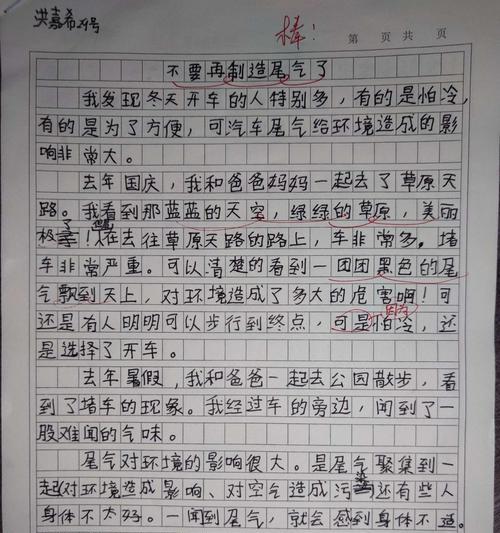 洪嘉希29号
棒！
第 页共 页
不要再制造尾气了
我发现冬天开车的人特别多，有的是怕冷，
有的是为了方便，可汽车尾气给环境造成的影
响非常大。
去年国庆，我和爸爸妈妈一起去了草原天
路。我看到那蓝蓝的天空，绿绿的草原，美丽
极了！在去往草原天路的路上，车非常多。堵
车非常严重。可以清楚的看到一团团黑色的尾
气飘到天上，对环境造成了多大的危害啊！可
还是有人明明可以步行到终点，可是因为怕冷，还
是选择了开车。
去年暑假，我和爸爸一起去公园散步，看
到了堵车的现象。我经过车的旁边，闻到了一
股难闻的气味。
尾气对环境的影响很大。是尾气聚集到一
起对环境造成影响、对空气造成污染还有些人
身体不太好。一闻到尾气，就会感到身体不适。